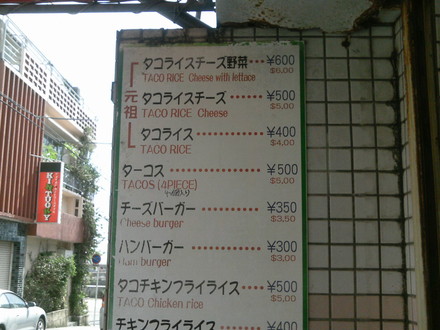 タコライスチーズ野菜・・・¥600
TACO RICE Cheese with lettace $6.00
元祖
タコライスチーズ・・・・・¥500
TACO RICE Cheese $5.00
タコライス・・・・・・・・¥400
TACO RICE $4.00
ターコス・・・・・・・・・¥500
TACOS (4PIECE) $5.00
チーズバーガー・・・・・・¥350
Cheese burger $3.50
ハンバーガー・・・・・・・¥300
Ham burger $3.00
タコチキンフライライス・・¥500
TACO Chicken rice $5.00
チキンフライライス・・・・¥400